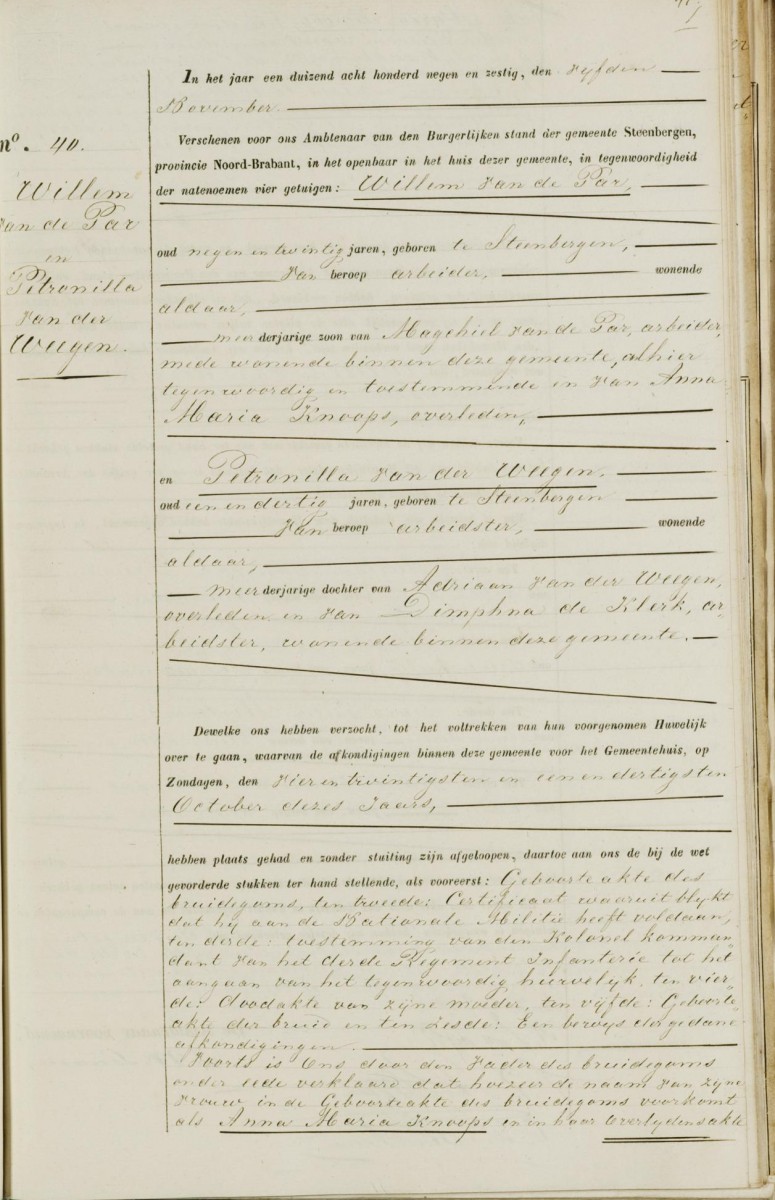 In het jaar een duizend acht honderd negen en zestig, den vyfden
November.
Verschenen voor ons Ambtenaar van den Burgerlijken stand der gemeente Steenbergen,
provincie Noord-Brabant, in het openbaar in het huis dezer gemeente, in tegenwoordigheid
der natenoemen vier getuigen: Willem van de Par,
oud negen en twintig jaren, geboren te Steenbergen,
van beroep arbeider, wonende
aldaar,
meerderjarige zoon van Magchiel van de Par, arbeider,
mede wonende binnen deze gemeente, alhier
tegenwoordig en toestemmende en van Anna
Maria Knoops, overleden,
en Petronilla van der Weegen.
oud een en dertig jaren, geboren te Steenbergen
van beroep arbeidster, wonende
aldaar,
meerderjarige dochter van Adriaan van der Weegen,
overleden en van Dimphna de Klerk, ar-
beidster, wonende binnen deze gemeente.
Dewelke ons hebben verzocht, tot het voltrekken van hun voorgenomen Huwelijk
over te gaan, waarvan de afkondigingen binnen deze gemeente voor het Gemeentehuis, op
Zondagen, den vier en twintigsten en een en dertigsten
October dezes Jaars,
hebben plaats gehad en zonder stuiting zijn afgeloopen, daartoe aan ons de bij de wet
gevorderde stukken ter hand stellende, als vooreerst: Geboorte akte des
bruidegoms, ten tweede: Certificaat waaruit blykt
dat hy aan de Nationale Militie heeft voldaan,
ten derde: toestemming van den Kolonel komman-
dant van het derde Regement Infanterie tot het
aangaan van het tegenwoordig huwelyk, ten vier-
de: doodakte van zyne moeder, ten vyfde: Geboorte-
akte der bruid en ten zesde: Een bewys der gedane
afkondigingen.
Voorts is Ons door den Vader des bruidegoms
onder eede verklaard dat hoezeer de naam van zyne
vrouw in de Geboorteakte des bruidegoms voorkomt
als Anna Maria Knoops en in haar Overlydensakte
No. 40.
Willem
van de Par
en
Petronilla
van der
Weegen.